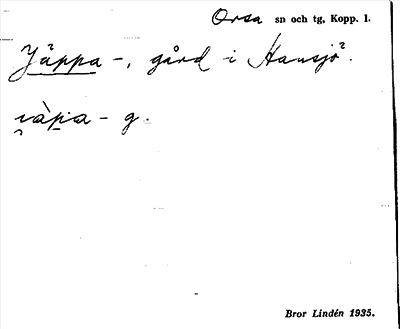 Orsa sn och tg, Kopp. l.
Jäppa-, gård i Hansjö².
i̯àpa- g.
Bror Lindén 1935.